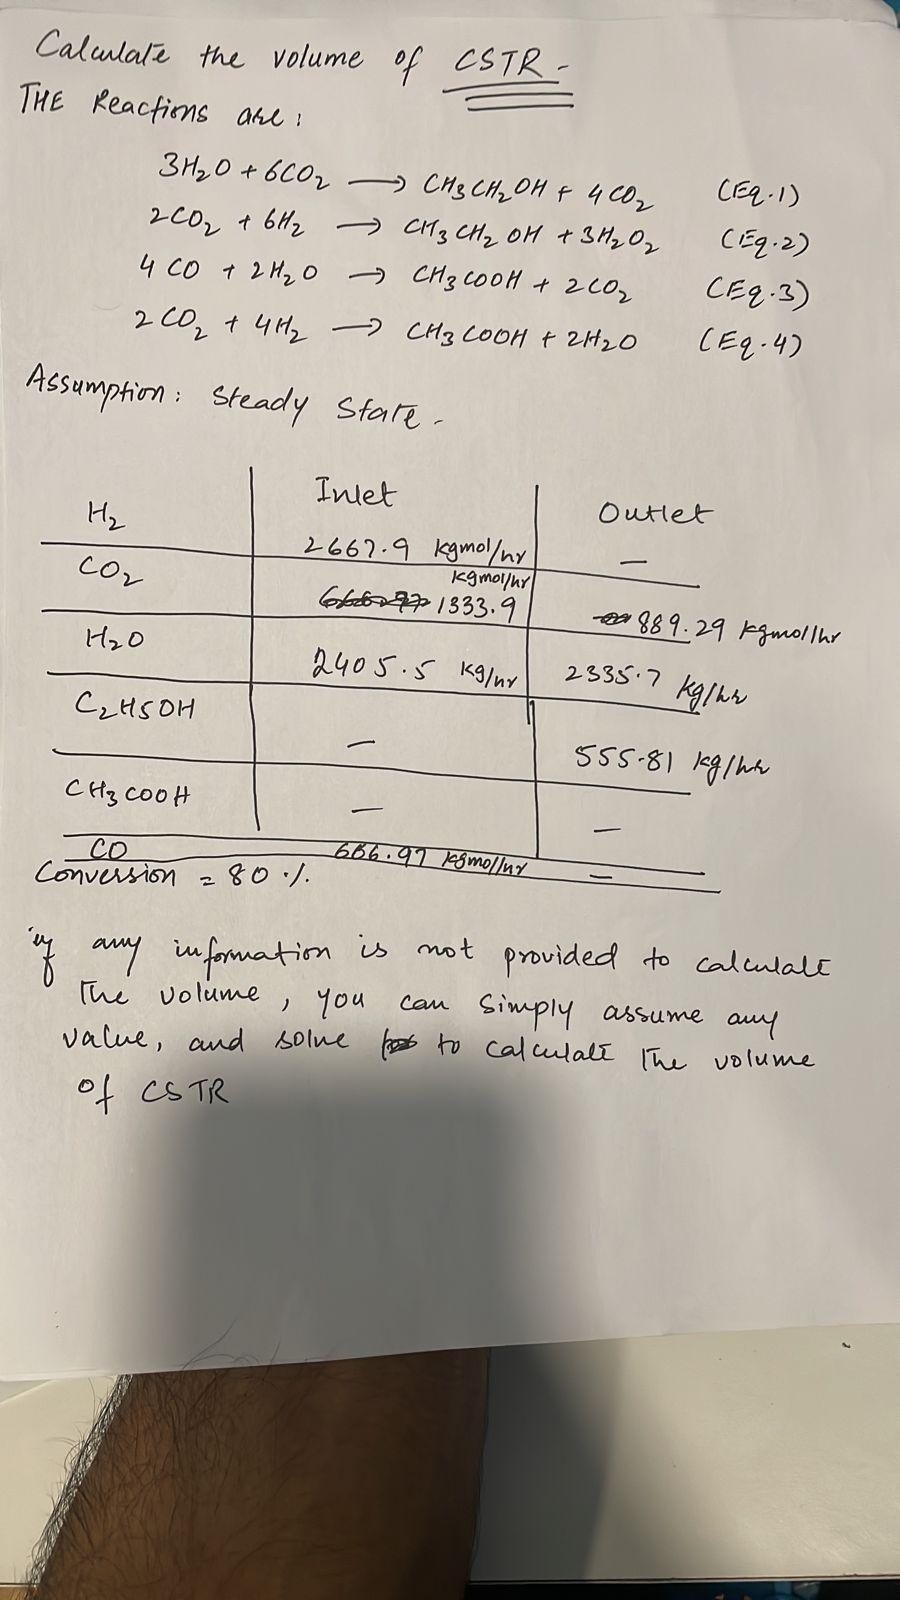 Calculate the volume of CSTR -
THE Reactions are :
3H₂O + 6CO₂ → CH₃CH₂OH + 4CO₂ (Eq.1)
2CO₂ + 6H₂ → CH₃CH₂OH + 3H₂O₂ (Eq.2)
4CO + 2H₂O → CH₃COOH + 2CO₂ (Eq.3)
2CO₂ + 4H₂ → CH₃COOH + 2H₂O (Eq.4)
Assumption : Steady State -
Inlet Outlet
H₂ 2667.9 kgmol/hr —
CO₂ 1333.9 kgmol/hr 889.29 kgmol/hr
H₂O 2405.5 kg/hr 2335.7 kg/hr
C₂H5OH — 555.81 kg/hr
CH₃COOH — —
CO 666.97 kgmol/hr —
Conversion = 80 %.
if any information is not provided to calculate
The volume, you can simply assume any
value, and solve to calculate The volume
of CSTR